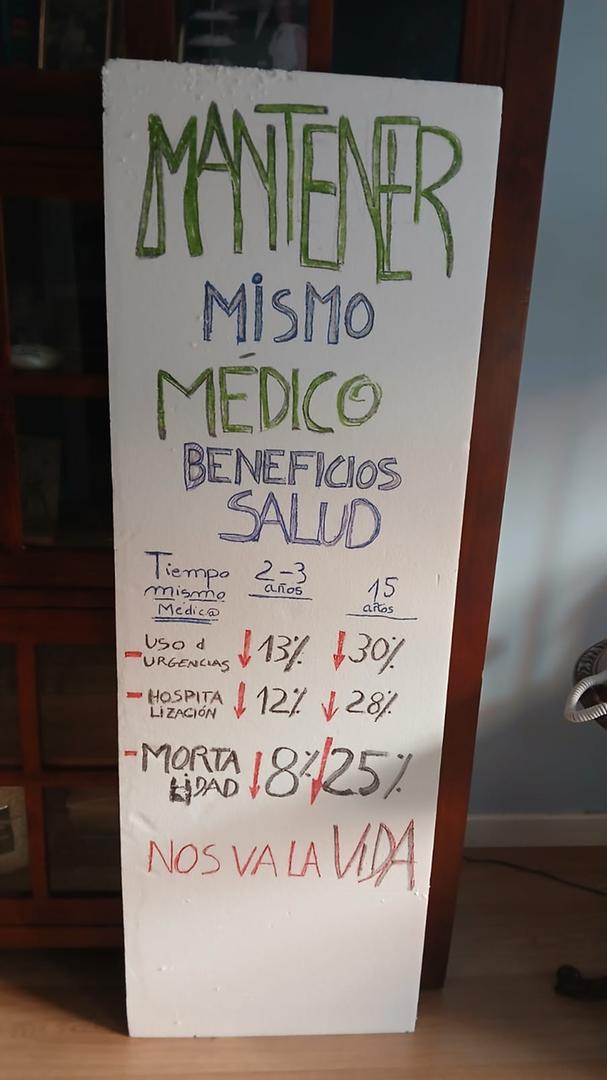 MANTENER
MISMO
MÉDIC@
BENEFICIOS
SALUD
Tiempo mismo Médic@ 2-3 años 15 años
- USO d URGENCIAS ↓13% ↓30%
- HOSPITALIZACIÓN ↓12% ↓28%
- MORTALIDAD ↓8% ↓25%
NOS VA LA VIDA